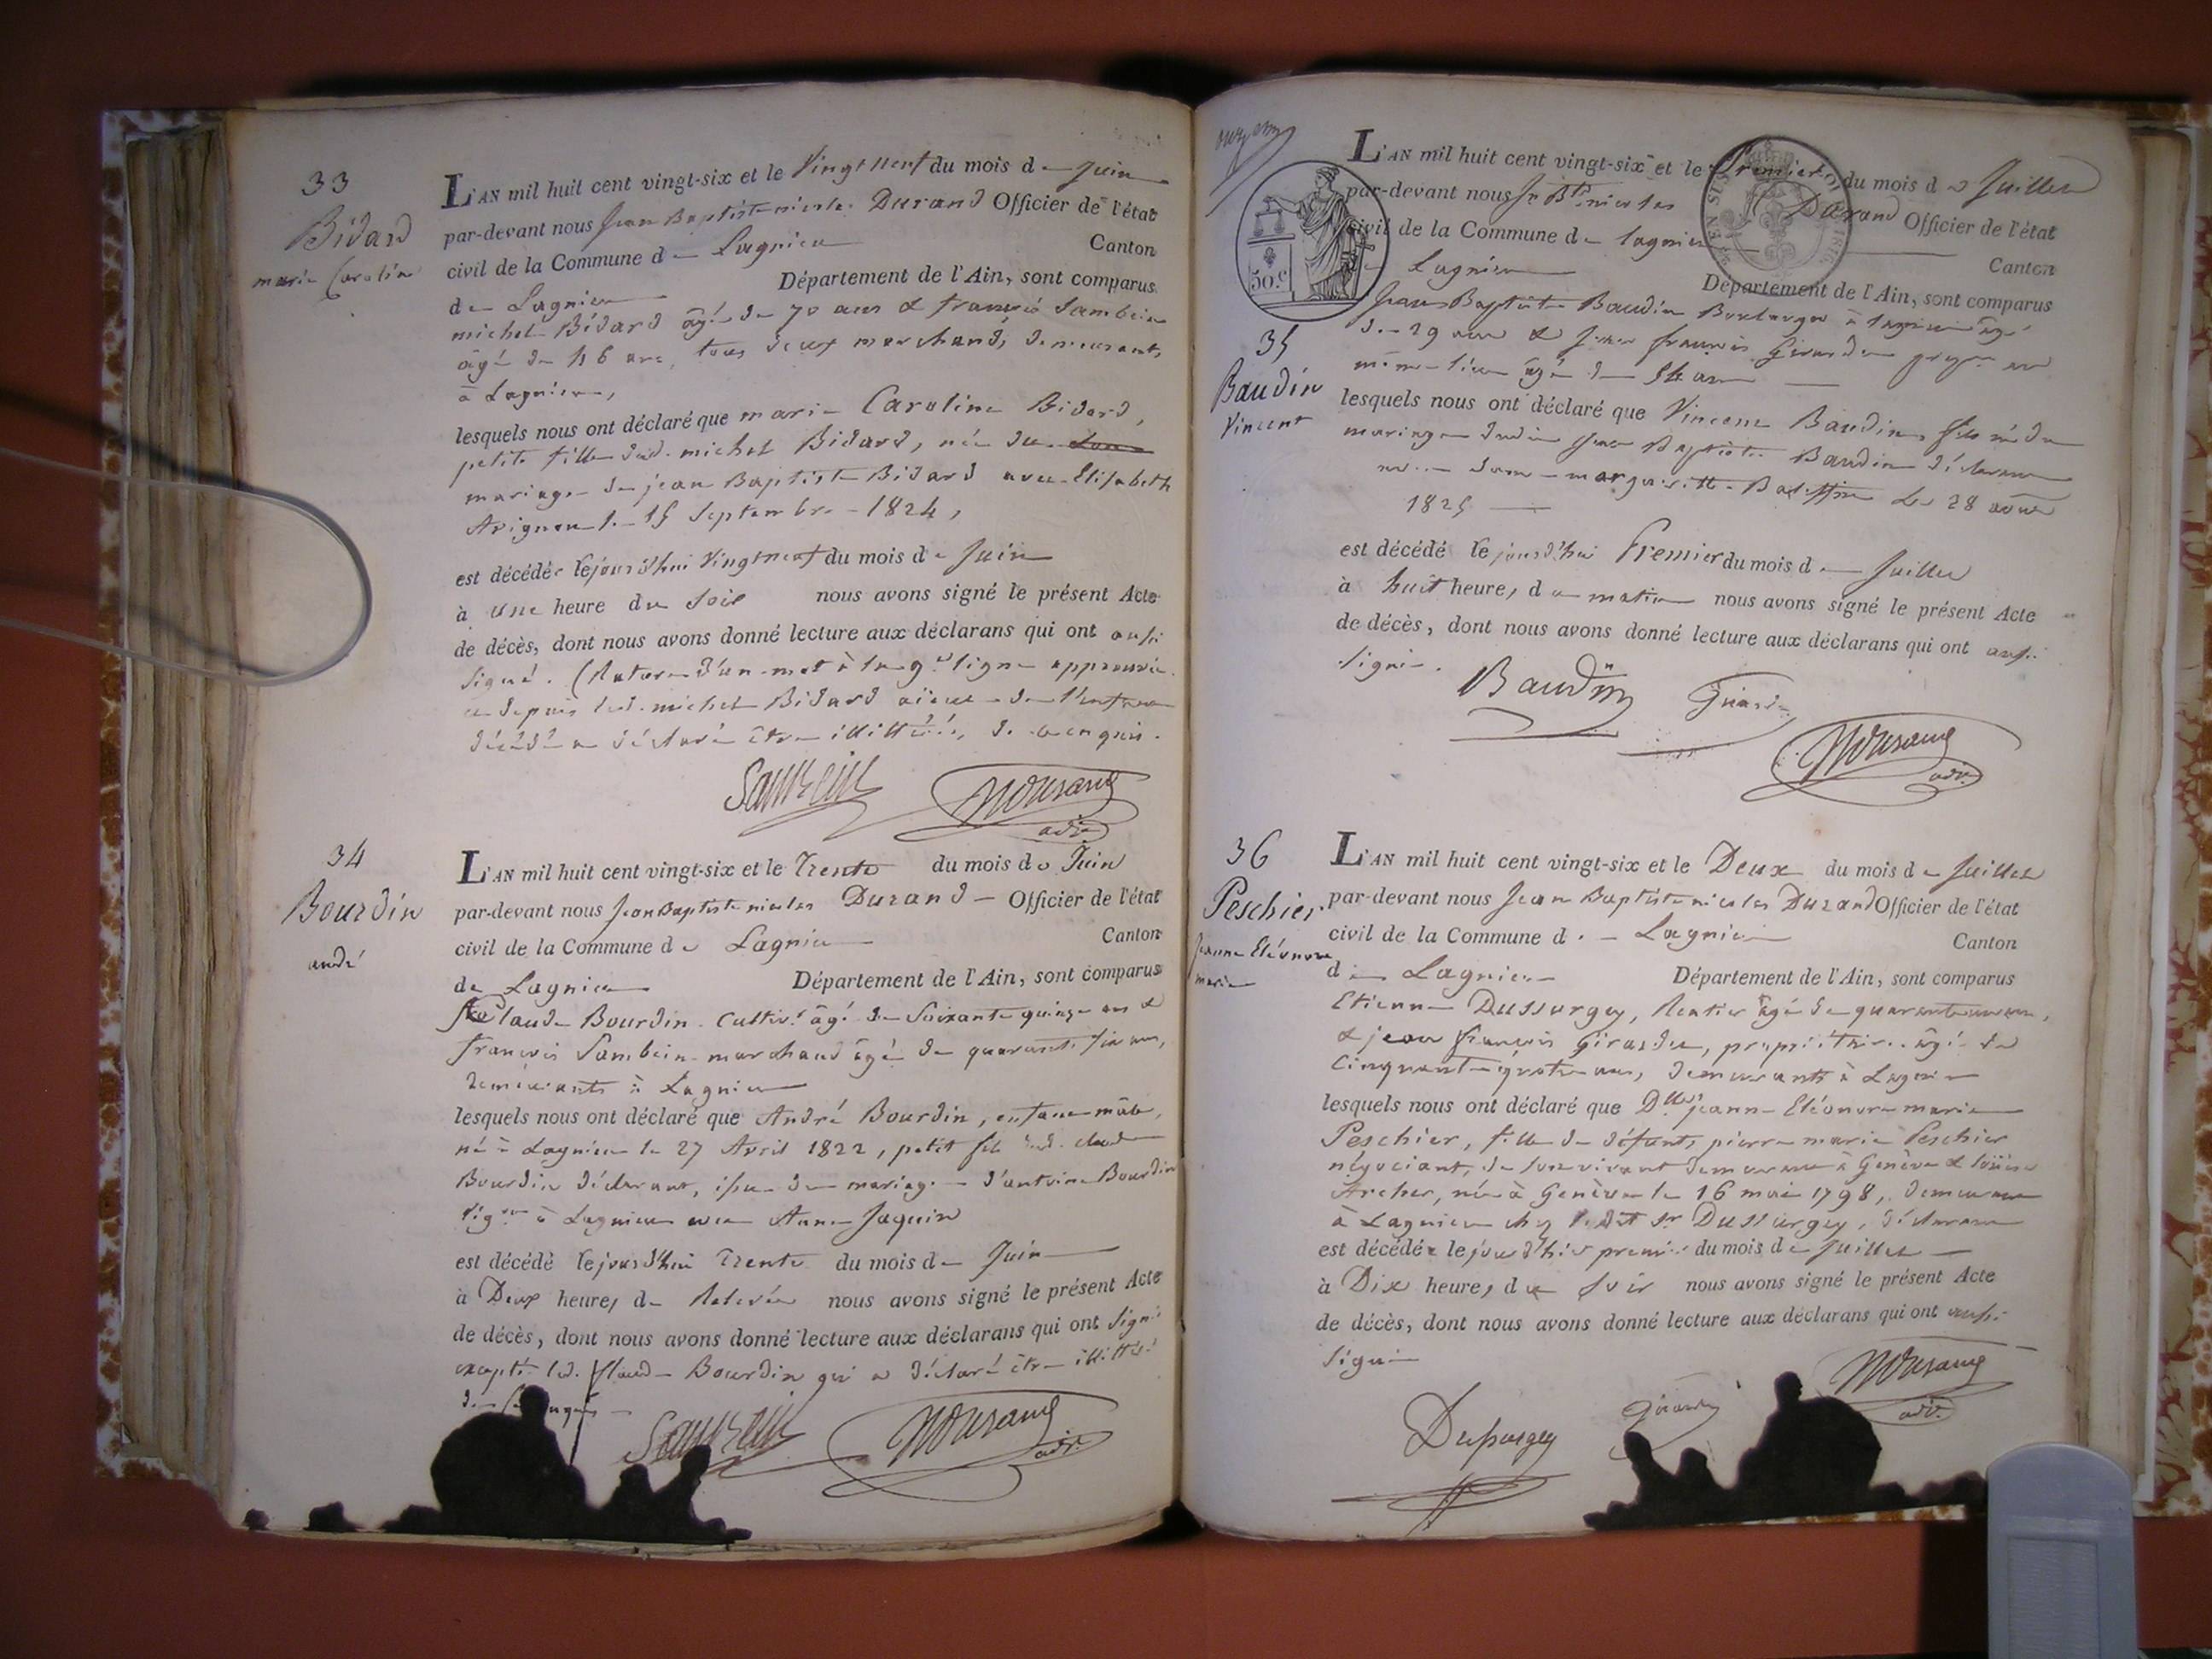 33
Bidard
marie Caroline
L'AN mil huit cent vingt-six et le Vingt neuf du mois de Juin
par-devant nous Jean Baptiste nicolas Durand Officier de l'état
civil de la Commune de Lagnieu Canton
de Lagnieu Département de l'Ain, sont comparus
michel Bidard âgé de 70 ans & françois Sambein
âgé de 46 ans, tous deux marchands, demeurants
à Lagnieu,
lesquels nous ont déclaré que marie Caroline Bidard,
petite fille dud. michel Bidard, née du
mariage de jean Baptiste Bidard avec Elisabeth
Avignon le 15 Septembre 1824,
est décédée le jourd'hui Vingt neuf du mois de Juin
à une heure du Soir nous avons signé le présent Acte
de décès, dont nous avons donné lecture aux déclarans qui ont aussi
signé. (Rature d'un mot à la 9e ligne approuvée
et depuis led. michel Bidard aïeul de l'enfant
décédé a déclaré être illittéré, de ce enquis.
34
Bourdin
andré
L'AN mil huit cent vingt-six et le Trente du mois de Juin
par-devant nous Jean Baptiste nicolas Durand Officier de l'état
civil de la Commune de Lagnieu Canton
de Lagnieu Département de l'Ain, sont comparus
Claude Bourdin cultivr âgé de Soixante quinze ans &
françois Sambein marchand âgé de quarante six ans,
demeurants à Lagnieu
lesquels nous ont déclaré que André Bourdin, enfant mâle,
né à Lagnieu le 27 Avril 1822, petit fils dud. claude
Bourdin déclarant, issu du mariage d'antoine Bourdin
vigon à Lagnieu avec Anne Jaquin
est décédé le jourd'hui Trente du mois de Juin
à Deux heures de Relevée nous avons signé le présent Acte
de décès, dont nous avons donné lecture aux déclarans qui ont signé
excepté led. Claude Bourdin qui a déclaré être illittéré
L'AN mil huit cent vingt-six et le Premier du mois de Juillet
par-devant nous Jn Bte nicolas Durand Officier de l'état
civil de la Commune de Lagnieu Canton
de Lagnieu Département de l'Ain, sont comparus
50.c
Jean Baptiste Baudin Boulanger à Lagnieu âgé
de 29 ans & Jean françois Girardin au
même lieu âgé de 54 ans
35
Baudin
Vincent
lesquels nous ont déclaré que Vincent Baudin, fils né du
mariage dudit Jean Baptiste Baudin déclarant
avec dame margueritte le 28
1825
est décédé le jourd'hui Premier du mois de Juillet
à huit heures du matin nous avons signé le présent Acte
de décès, dont nous avons donné lecture aux déclarans qui ont aussi
signé.
Baudin
36
Peschier
Jeanne Eléonore
marie
L'AN mil huit cent vingt-six et le Deux du mois de Juillet
par-devant nous Jean Baptiste nicolas Durand Officier de l'état
civil de la Commune de Lagnieu Canton
de Lagnieu Département de l'Ain, sont comparus
Etienne Dussurgey, Rentier âgé de quarante un ans,
& jean françois Girardin, propriétaire âgé de
cinquante quatre ans, demeurants à Lagnieu
lesquels nous ont déclaré que Dlle jeanne Eléonore marie
Peschier, fille de défunts pierre marie Peschier
négociant, de son vivant demeurant à Genève & Louise
Archer, née à Genève le 16 mai 1798, demeurant
à Lagnieu chez ledit Sr Dussurgey, déclarant
est décédée le jourd'hier premier du mois de Juillet
à Dix heures du Soir nous avons signé le présent Acte
de décès, dont nous avons donné lecture aux déclarans qui ont aussi
signé
Dussurgey